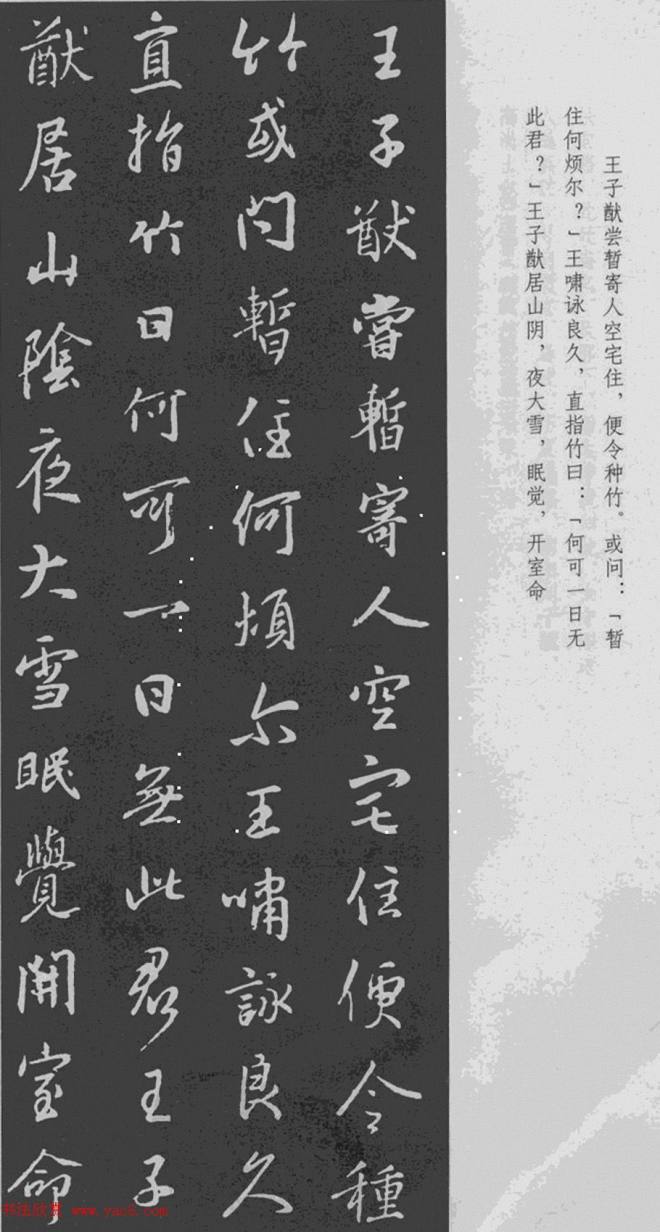 王子猷尝暂寄人空宅住，便令种竹。或问：「暂
住何烦尔？」王啸咏良久，直指竹曰：「何可一日无
此君？」王子猷居山阴，夜大雪，眠觉，开室命
王子猷嘗暫寄人空宅住便令種
竹或問暫住何煩尔王嘯詠良久
直指竹曰何可一日無此君王子
猷居山陰夜大雪眠覺開室命
书法欣赏 www.yac8.com